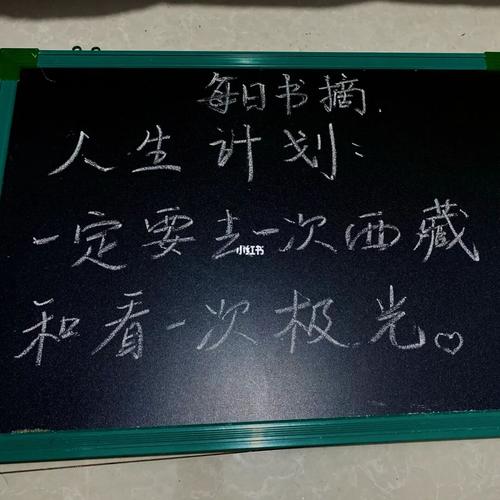 每日书摘.
人生计划:
一定要去一次西藏
小红书
和看一次极光。♡